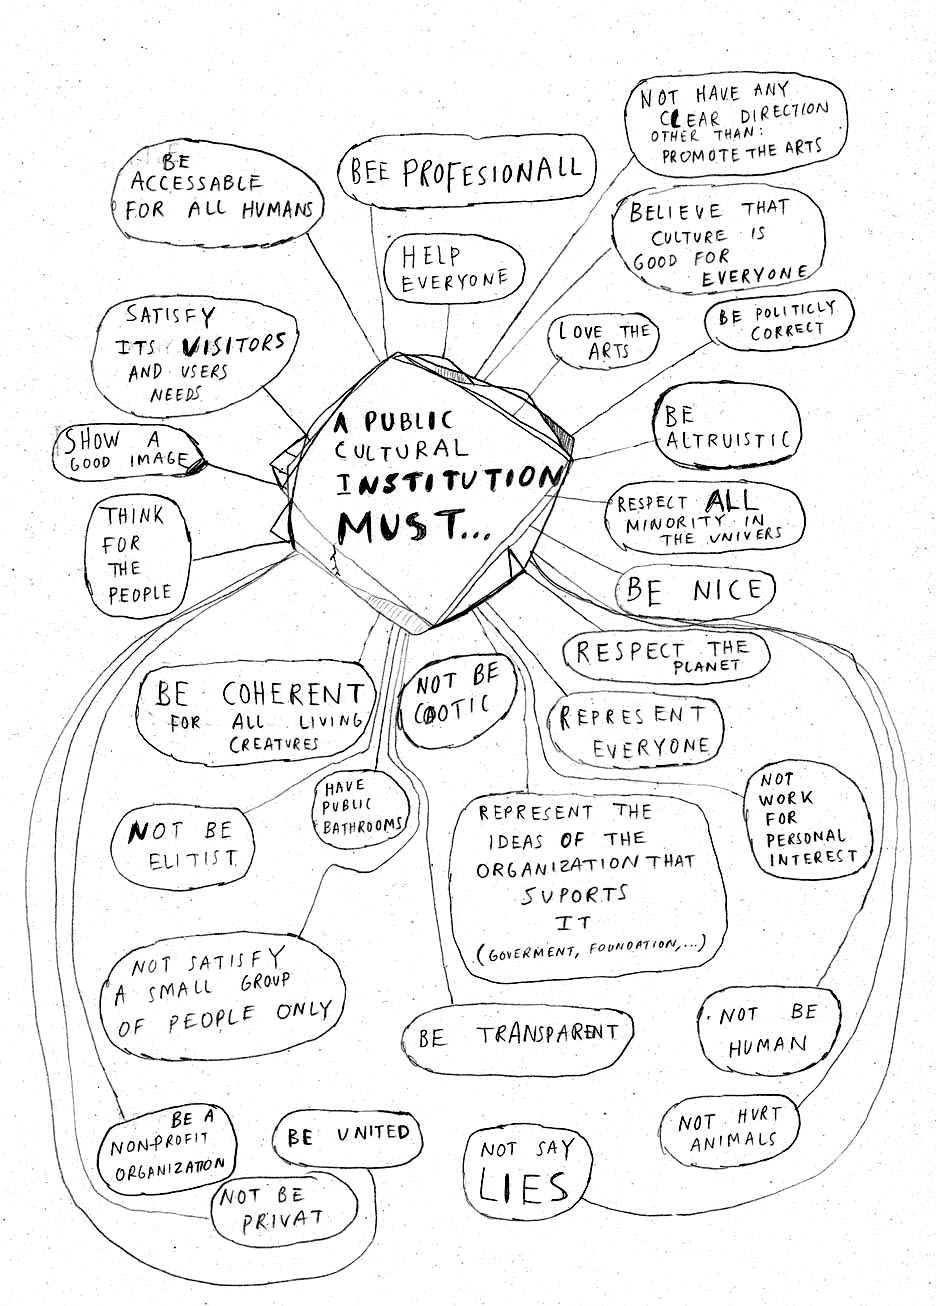 NOT HAVE ANY
CLEAR DIRECTION
OTHER THAN:
PROMOTE THE ARTS
BE
ACCESSABLE
FOR ALL HUMANS
BEE PROFESIONALL
BELIEVE THAT
CULTURE IS
GOOD FOR
EVERYONE
HELP
EVERYONE
SATISFY
ITS VISITORS
AND USERS
NEEDS
LOVE THE
ARTS
BE POLITICLY
CORRECT
SHOW A
GOOD IMAGE
A PUBLIC
CULTURAL
INSTITUTION
MUST...
BE
ALTRUISTIC
THINK
FOR
THE
PEOPLE
RESPECT ALL
MINORITY IN
THE UNIVERS
BE NICE
RESPECT THE
PLANET
BE COHERENT
FOR ALL LIVING
CREATURES
NOT BE
CAOTIC
REPRESENT
EVERYONE
HAVE
PUBLIC
BATHROOMS
NOT BE
ELITIST
REPRESENT THE
IDEAS OF THE
ORGANIZATION THAT
SUPORTS
IT
(GOVERMENT, FOUNDATION,...)
NOT
WORK
FOR
PERSONAL
INTEREST
NOT SATISFY
A SMALL GROUP
OF PEOPLE ONLY
BE TRANSPARENT
NOT BE
HUMAN
BE A
NON-PROFIT
ORGANIZATION
BE UNITED
NOT SAY
LIES
NOT HURT
ANIMALS
NOT BE
PRIVAT